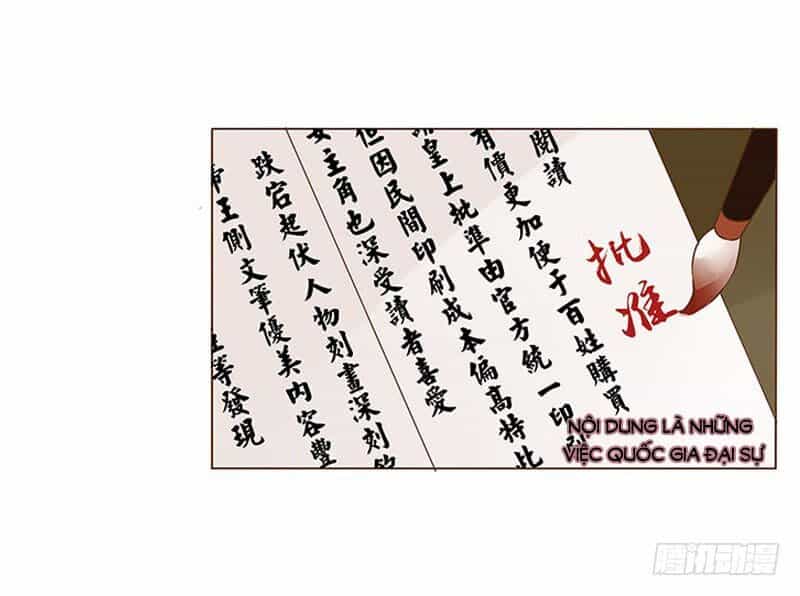 閱讀
有價更加便于百姓購買
請皇上批準由官方統一印刷
但因民間印刷成本偏高特此
女主角也深受讀者喜愛
跌宕起伏人物刻畫深刻飽
帝王側文筆優美內容豐
等發現
批准
NỘI DUNG LÀ NHỮNG
VIỆC QUỐC GIA ĐẠI SỰ
腾讯动漫